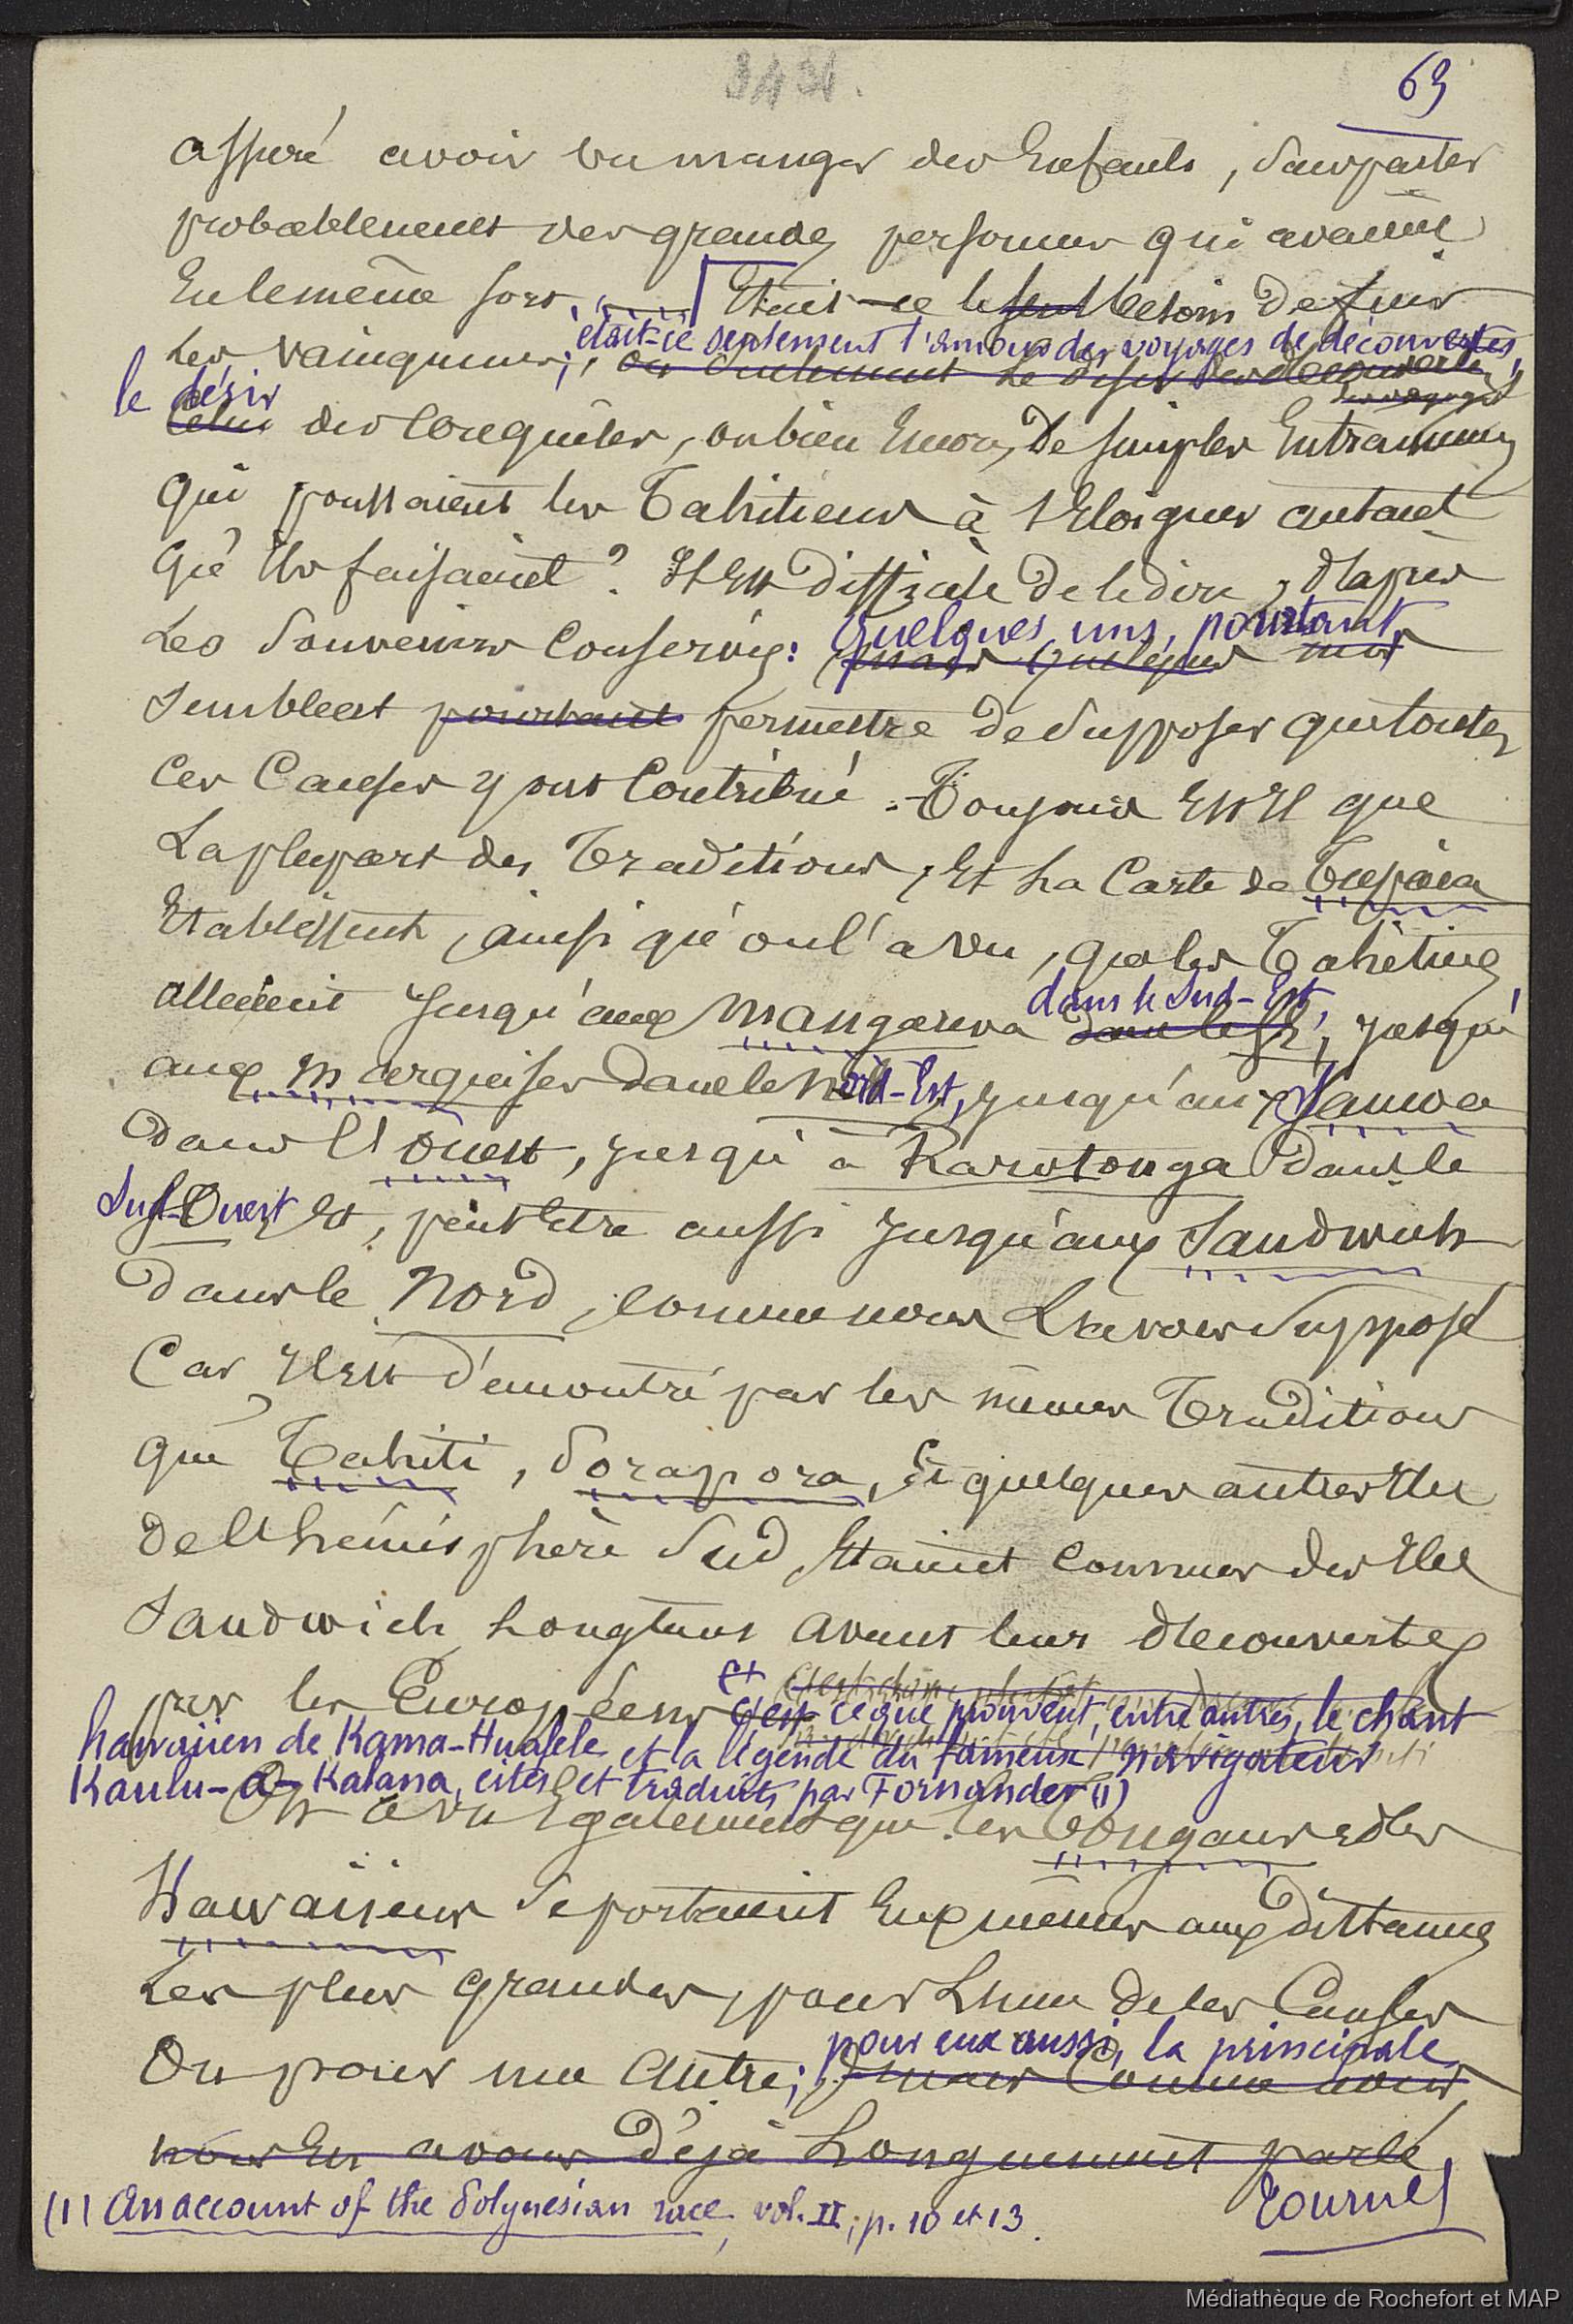 3431.
69
assuré avoir vu manger des Enfants, sans parler
probablement des grandes personnes qui avaient
Eu le même sort. Etait-ce le seul besoin de fuir
était-ce seulement l'amour des voyages de découvertes,
Les vainqueurs; ou seulement le désir des découvertes
des voyages
le désir
Celui des Conquêtes, ou bien Encore, de simples Entrainements
Qui poussaient les Tahitiens à s'Eloigner autant
Qu'Ils faisaient? Il Est difficile de le dire, d'après
quelques uns, pourtant,
Les Souvenirs Conservés: mais quelques uns
Semblent pourtant permettre de Supposer que toutes
Ces Causes y ont Contribué. Toujours Est Il que
La plupart des Traditions, Et La Carte de Tupaia
Etablissent, ainsi qu'on l'a vu, que les Tahitiens
dans le Sud-Est,
allaient Jusqu'aux Mangareva dans l'Est, jusqu'
aux Marquises dans le Nord-Est, jusqu'aux Samoa
Dans l'Ouest, jusqu'à Rarotonga Dans le
Sud-Ouest Et, peut Etre aussi Jusqu'aux Sandwich
Dans le Nord, comme nous L'avons Supposé
Car Il Est démontré par les mêmes Traditions
que Tahiti, Porapora, Et quelques autres Iles
De l'hémisphère Sud, Etaient connues des Iles
Sandwich Longtems avant leur découverte
par les Européens et c'est ce que prouvent, entre autres, le chant
hawaiien de Kama-Hualele et la légende du fameux navigateur
Kaulu-a-Kalana, cités et traduits par Fornander (1)
On a vu Egalement que les Tongans et les
Hawaiiens Se portaient Eux mêmes aux distances
Les plus grandes, pour L'une de ces Causes
pour eux aussi, la principale
Ou pour une autre; mais Comme nous
nous En avons Déjà Longuement parlé
(1) An account of the Polynesian race, vol. II, p. 10 et 13.
Tournez
Médiathèque de Rochefort et MAP